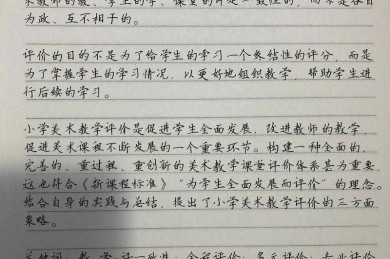 求教师的教、学生的学、课堂的评是一致性的，而不是各自
为政、互不相干的。
评价的目的不是为了给学生的学习一个终结性的评分，而是
为了掌握学生的学习情况，以更好地组织教学，帮助学生进
行后续的学习。
小学美术教学评价是促进学生全面发展，改进教师的教学，
促进美术课程不断发展的一个重要环节。构建一种全面的、
完善的、重过程、重创新的美术教学课堂评价体系甚为重要，
这也符合《新课程标准》“为学生全面发展而评价”的理念。
结合自身的实践与总结，提出了小学美术教学评价的三方面
策略。
关键词：教 学 评一致性；全程评价；多元评价；专业评价